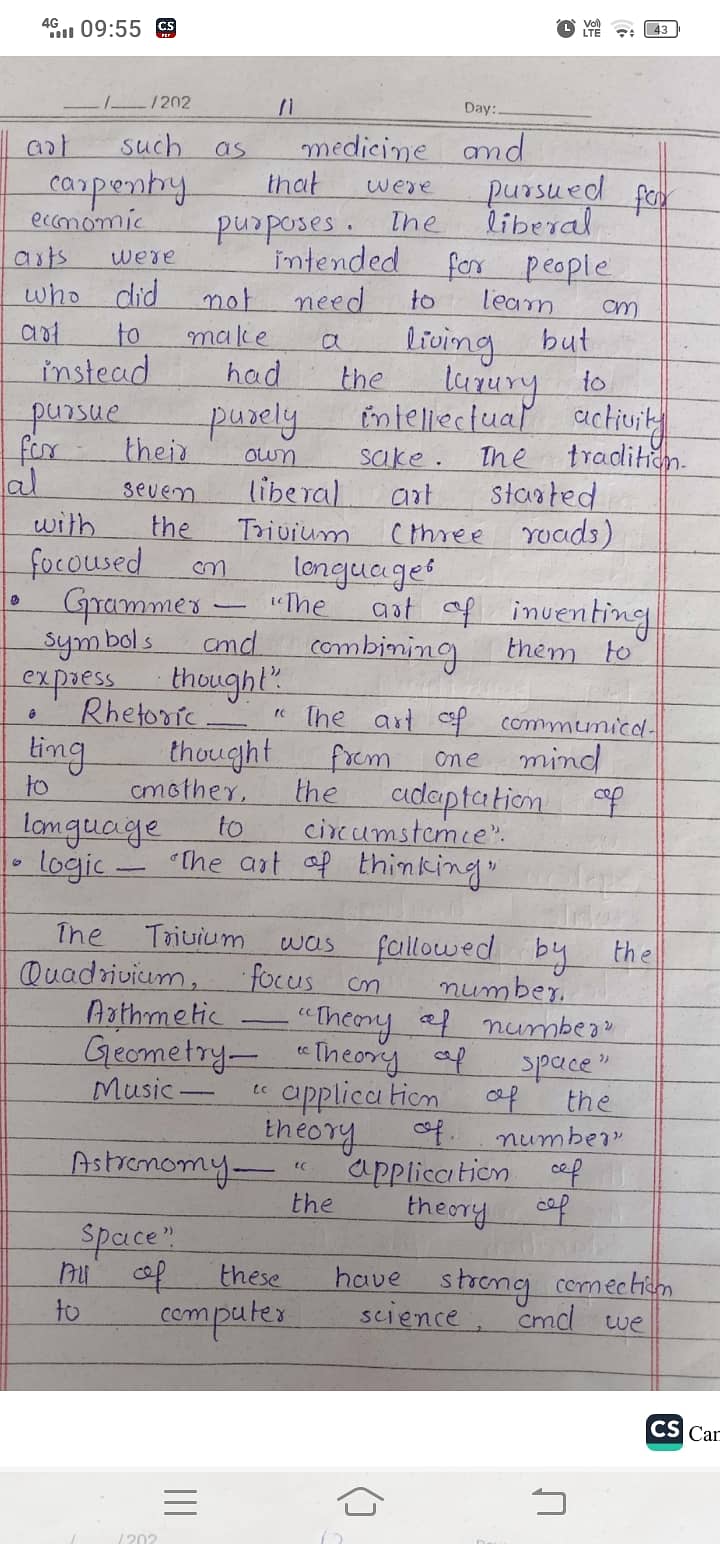 4G 09:55 CS PDF Vo) LTE 43
__/__/202 11 Day:
art such as medicine and
carpentry that were pursued for
economic purposes. The liberal
arts were intended for people
who did not need to learn an
art to make a living but
instead had the luxury to
pursue purely intellectual activity
for their own sake. The tradition-
al seven liberal art started
with the Trivium (three roads)
focoused on languages
• Grammer — "The art of inventing
symbols and combining them to
express thought".
• Rhetoric — "The art of communica-
ting thought from one mind
to another, the adaptation of
language to circumstance".
• logic — "The art of thinking"
The Trivium was fallowed by the
Quadrivium, focus on number.
Arthmetic — "Theory of number"
Geometry — "Theory of space"
Music — "application of the
theory of number"
Astronomy — "application of
the theory of
space".
All of these have strong connection
to computer science, and we
CS Car
/202